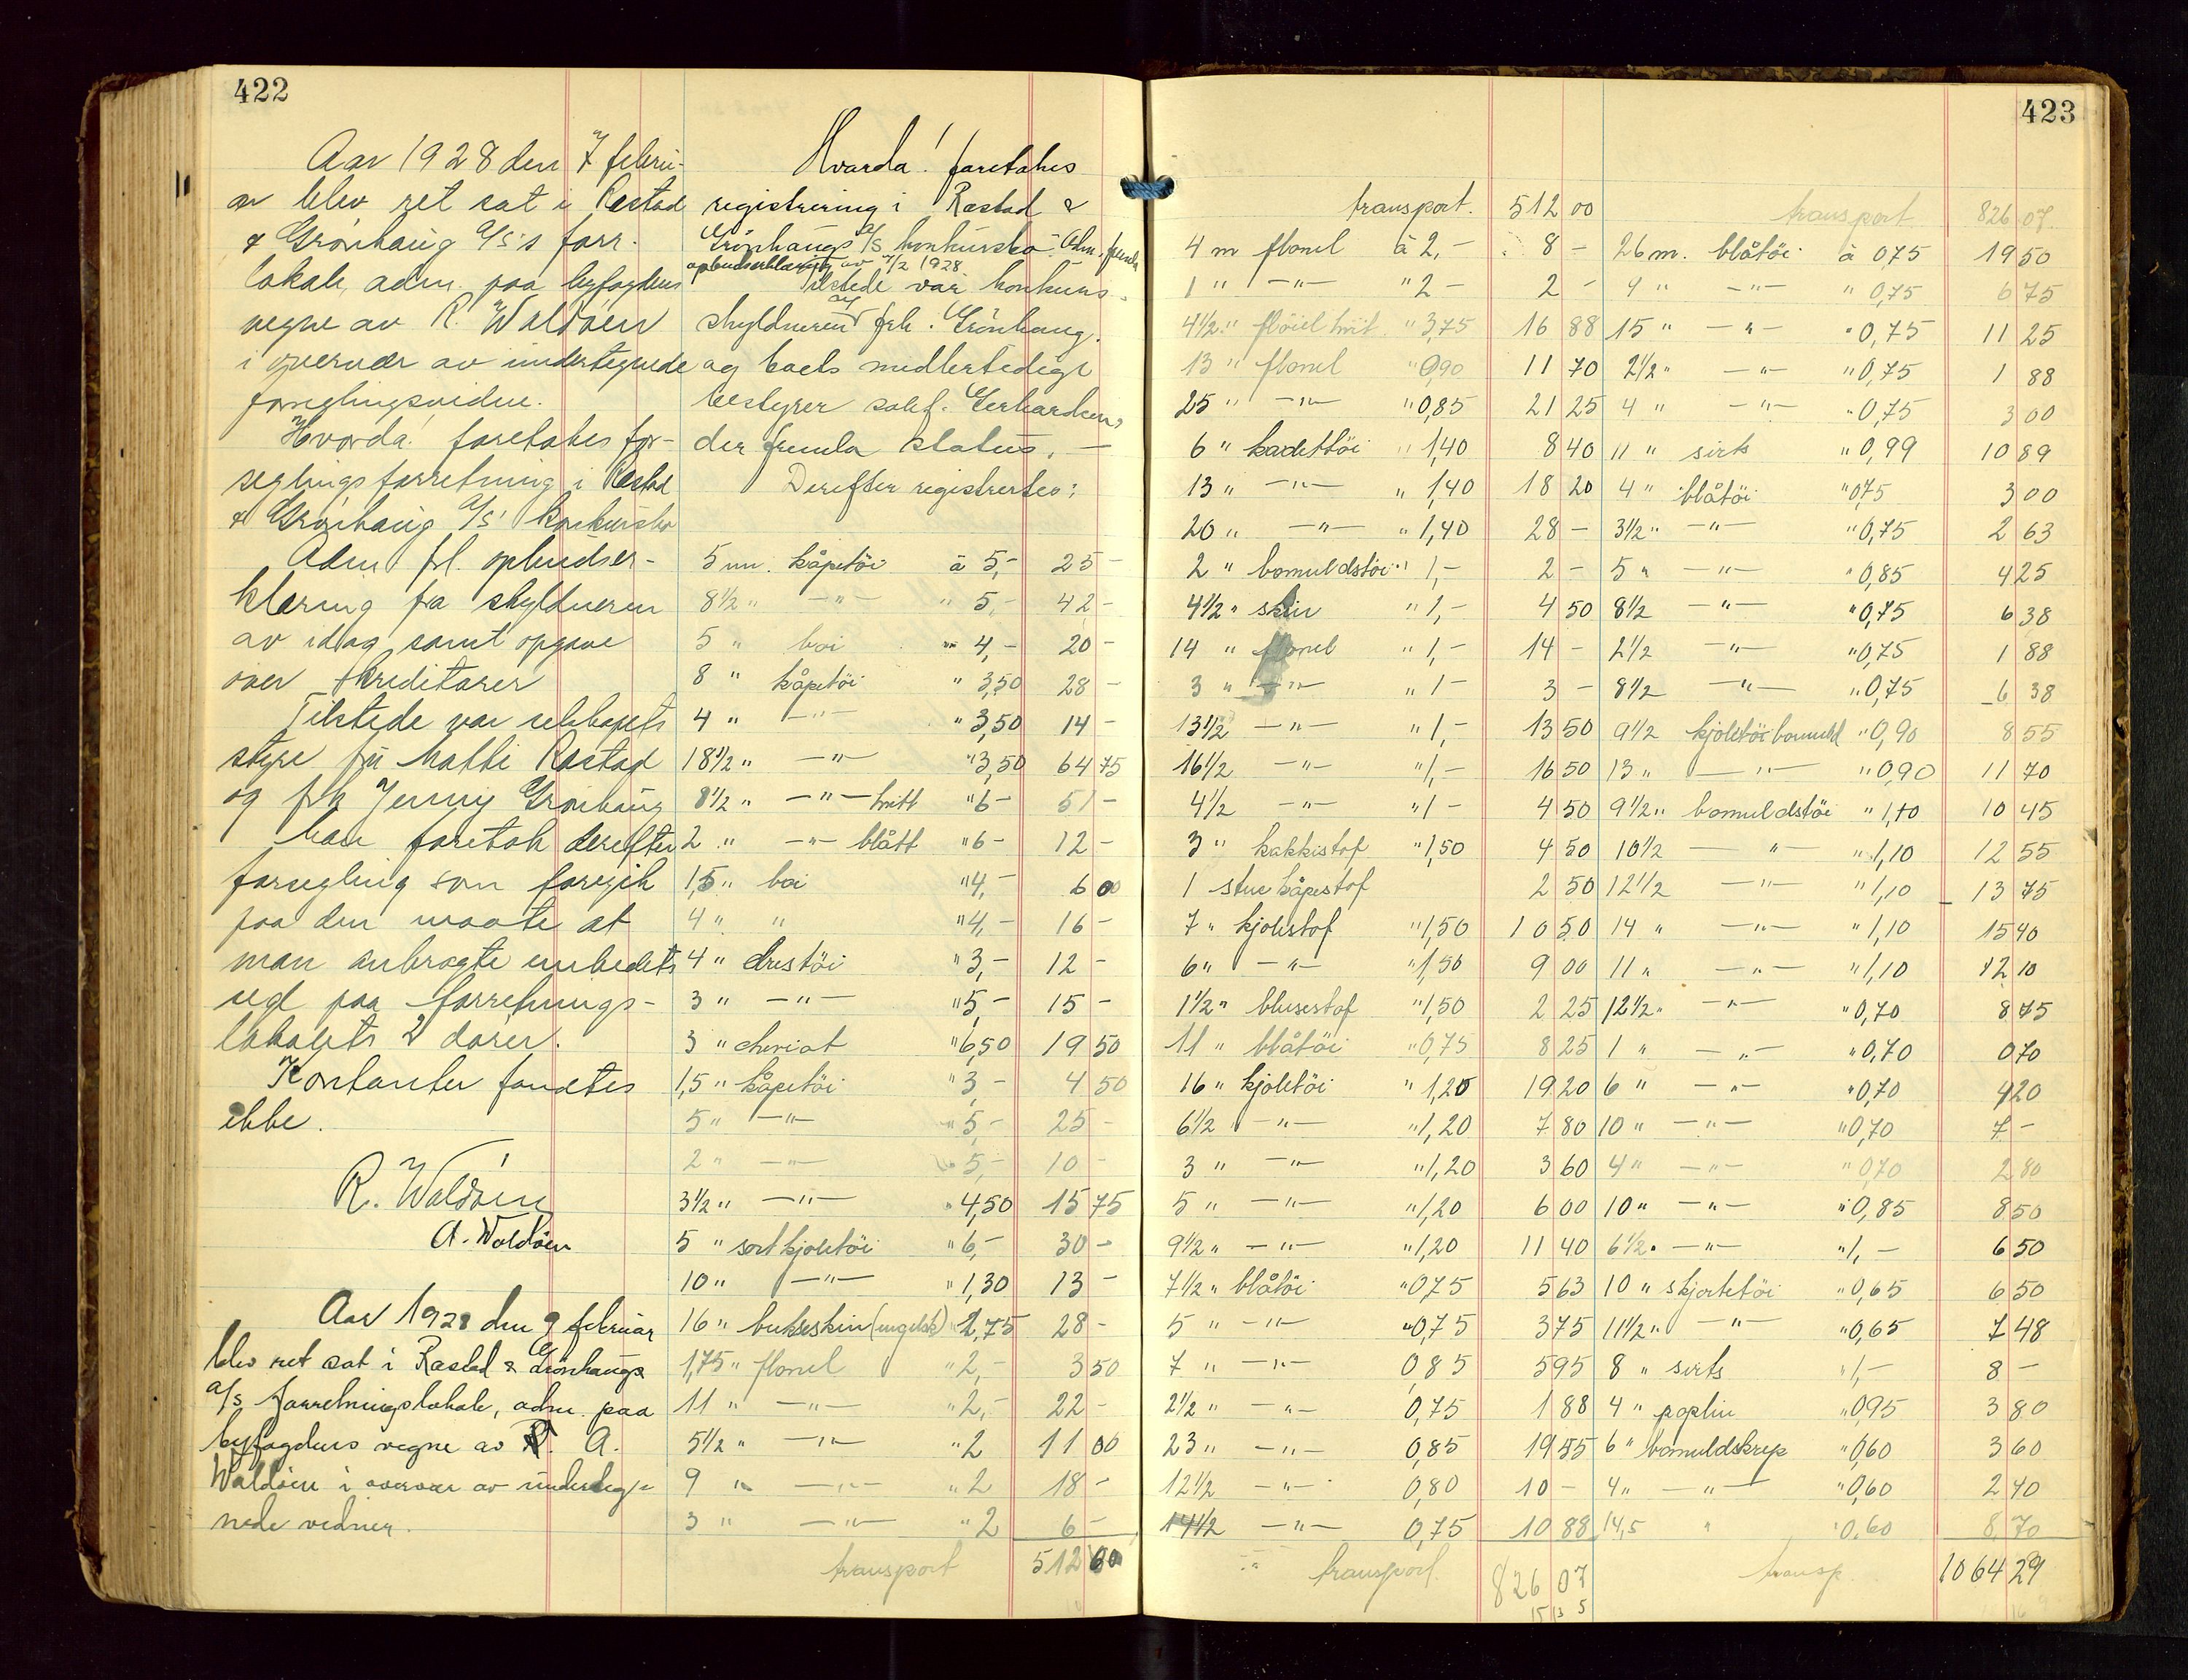 422
Aar 1928 den 7 febru-
ar blev ret sat i Rastad
& Grönhaug A/S's forr.
lokale, adm. paa byfogdens
vegne av R. Waldöen
i overvær av undertegnede
forseglingsvidne.
Hvorda! foretokes for-
seglingsforretning i Rastad
& Grönhaug A/S' konkursbo
Adm frl. opbudser-
klæring fra skyldneren
av idag samt opgave
over kreditorer
Tilstede var selskapets
styre fru Malli Rastad
og frk Jenny Grönhaug
Man foretok derefter
forsegling som foregik
paa den maate at
man anbragte embedets
segl paa forretnings-
lokalets 2 dører.
Kontanter fandtes
ikke.
R. Waldöen
A. Waldöen
Aar 1928 den 9 februar
blev ret sat i Rastad & Grönhaugs
A/S forretningslokale, adm. paa
byfogdens vegne av A.
Waldöen i overvær av underteg-
nede vidner.
Hvorda! foretokes
registrering i Rastad &
Grönhaugs A/S konkursbo. Adm. fremla
opbudserklæring av 7/2 1928
Tilstede var konkurs-
skyldneren ved frk. Grönhaug.
og boets midlertidige
bestyrer sakf. Gerhardsen,
der fremla status. —
Derefter registrertes:
5 m. kåpetöi à 5,- 25 -
8½ " -"- " 5,- 42 -
5 " boi " 4,- 20 -
8 " kåpetöi " 3,50 28 -
4 " -"- " 3,50 14 -
18½ " -"- " 3,50 64 75
8½ " -"- hvitt " 6- 51 -
2 " -"- blått " 6- 12 -
1,5 " boi " 4,- 6 00
4 " " " 4,- 16 -
4 " drestöi " 3,- 12 -
3 " -"- " 5,- 15 -
3 " cheviot " 6,50 19 50
1,5 " kåpetöi " 3,- 4 50
5 " -"- " 5,- 25 -
2 " -"- " 5,- 10 -
3½ " -"- " 4,50 15 75
5 " sort kjoletöi " 6,- 30 -
10 " -"- " 1,30 13 -
16 " bukseskin (engelsk) " 1,75 28 -
1,75 " flonel " 2,- 3 50
11 " -"- " 2,- 22 -
5½ " -"- " 2 11 00
9 " -"- " 2 18 -
3 " -"- " 2 6 -
transport 512 00
423
transport. 512 00
4 m flonel à 2,- 8 -
1 " -"- " 2 - 2 -
4½ " flöiel hvit " 3,75 16 88
13 " flonel " 0,90 11 70
25 " -"- " 0,85 21 25
6 " kadettöi " 1,40 8 40
13 " -"- " 1,40 18 20
20 " -"- " 1,40 28 -
2 " bomuldstöi " 1,- 2 -
4½ " skin " 1,- 4 50
14 " flonel " 1,- 14 -
3 " -"- " 1 - 3 -
13½ -"- " 1,- 13 50
16½ -"- " 1,- 16 50
4½ -"- " 1 - 4 50
3 " kakkistof " 1,50 4 50
1 stue kåpestof 2 50
7 " kjolestof " 1,50 10 50
6 " -"- " 1,50 9 00
1½ " blusestof " 1,50 2 25
11 " blåtöi " 0,75 8 25
16 " kjoletöi " 1,20 19 20
6½ -"- " 1,20 7 80
3 " -"- " 1,20 3 60
5 " -"- " 1,20 6 00
9½ " -"- " 1,20 11 40
7½ " blåtöi " 0,75 5 63
5 " -"- " 0,75 3 75
7 " -"- 0,85 5 95
2½ " -"- 0,75 1 88
23 " -"- 0,85 19 55
12½ -"- 0,80 10 -
14½ -"- 0,75 10 88
transport. 826 07
transport 826 07
26 m. blåtöi à 0,75 19 50
9 " -"- " 0,75 6 75
15 " -"- " 0,75 11 25
2½ " -"- " 0,75 1 88
4 " -"- " 0,75 3 00
11 " sirts " 0,99 10 89
4 " blåtöi " 0,75 3 00
3½ " -"- " 0,75 2 63
5 " -"- " 0,85 4 25
8½ -"- " 0,75 6 38
2½ -"- " 0,75 1 88
8½ -"- " 0,75 6 38
9½ kjoletöi bomuld " 0,90 8 55
13 " -"- " 0,90 11 70
9½ " bomuldstöi " 1,10 10 45
10½ -"- " 1,10 12 55
12½ -"- " 1,10 13 75
14 " -"- " 1,10 15 40
11 " -"- " 1,10 12 10
12½ " -"- " 0,70 8 75
1 " -"- " 0,70 0 70
6 " -"- " 0,70 4 20
10 " -"- " 0,70 7 -
4 " -"- " 0,70 2 80
10 " -"- " 0,85 8 50
6½ " -"- " 1,- 6 50
10 " skjortetöi " 0,65 6 50
11½ " -"- " 0,65 7 48
8 " sirts " 1,- 8 -
4 " poplin " 0,95 3 80
6 " bomuldskrep " 0,60 3 60
4 " -"- " 0,60 2 40
14,5 " " 0,60 8,70
transp. 1064 29